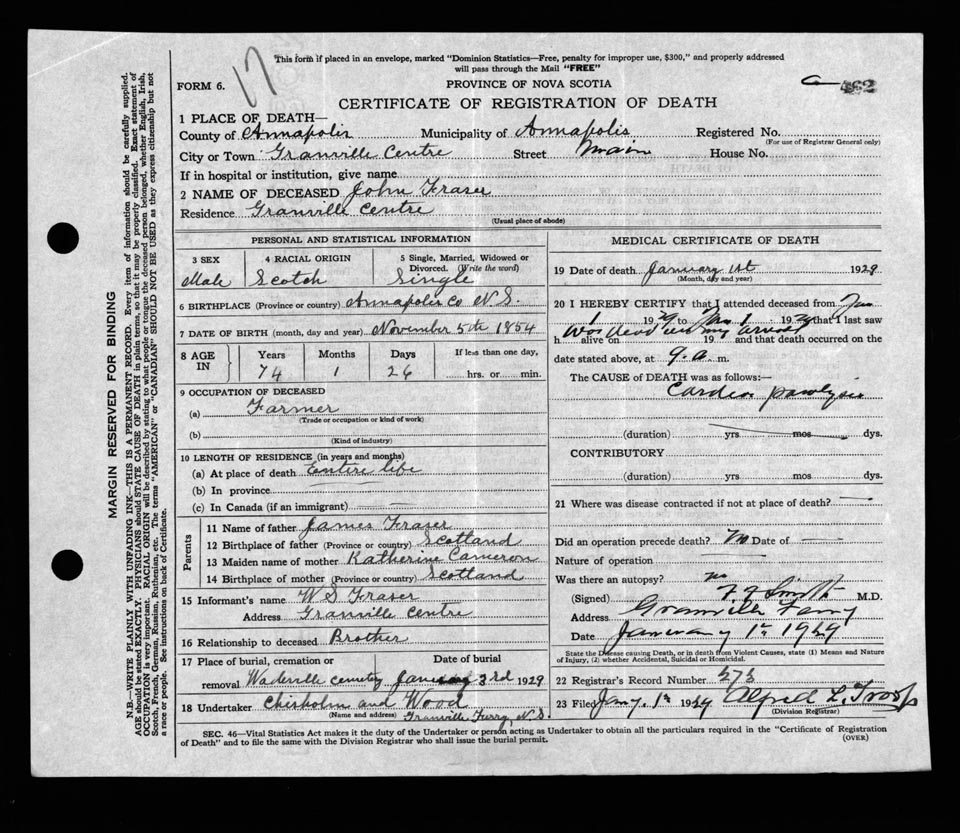 This form if placed in an envelope, marked "Dominion Statistics—Free, penalty for improper use, $300," and properly addressed
will pass through the Mail "FREE"
17
FORM 6.
PROVINCE OF NOVA SCOTIA
462
CERTIFICATE OF REGISTRATION OF DEATH
1 PLACE OF DEATH—
County of Annapolis Municipality of Annapolis Registered No.
(For use of Registrar General only)
City or Town Granville Centre Street Main House No.
If in hospital or institution, give name
2 NAME OF DECEASED John Fraser
Residence Granville Centre
(Usual place of abode)
PERSONAL AND STATISTICAL INFORMATION
3 SEX 4 RACIAL ORIGIN 5 Single, Married, Widowed or
Divorced. (Write the word)
Male Scotch Single
6 BIRTHPLACE (Province or country) Annapolis Co N.S.
7 DATE OF BIRTH (month, day and year) November 5th 1854
8 AGE IN Years Months Days If less than one day,
74 1 26 hrs. or min.
9 OCCUPATION OF DECEASED
(a) Farmer
(Trade or occupation or kind of work)
(b)
(Kind of industry)
10 LENGTH OF RESIDENCE (in years and months)
(a) At place of death Entire life
(b) In province
(c) In Canada (if an immigrant)
Parents
11 Name of father James Fraser
12 Birthplace of father (Province or country) Scotland
13 Maiden name of mother Katherine Cameron
14 Birthplace of mother (Province or country) Scotland
15 Informant's name W S Fraser
Address Granville Centre
16 Relationship to deceased Brother
17 Place of burial, cremation or Date of burial
removal Wadeville cemetry January 3rd 1929
18 Undertaker Chisholm and Wood
(Name and address) Granville Ferry, N.S.
MEDICAL CERTIFICATE OF DEATH
19 Date of death January 1st 1929
(Month, day and year)
20 I HEREBY CERTIFY that I attended deceased from Jan
1 1929 to Jan 1 1929 that I last saw
was dead on my arrival
h alive on 19 and that death occurred on the
date stated above, at 9. a. m.
The CAUSE of DEATH was as follows:—
Cardiac paralysis
(duration) yrs mos dys.
CONTRIBUTORY
(duration) yrs mos dys.
21 Where was disease contracted if not at place of death?
Did an operation precede death? No Date of
Nature of operation
Was there an autopsy? no
(Signed) Smith M.D.
Address Granville Ferry
Date January 1st 1929
State the Disease causing Death, or in death from Violent Causes, state (1) Means and Nature
of Injury, (2) whether Accidental, Suicidal or Homicidal.
22 Registrar's Record Number 573
23 Filed Jany. 1st 1929 Alfred L. Troop
(Division Registrar)
SEC. 46—Vital Statistics Act makes it the duty of the Undertaker or person acting as Undertaker to obtain all the particulars required in the "Certificate of Registration
of Death" and to file the same with the Division Registrar who shall issue the burial permit.
(OVER)
MARGIN RESERVED FOR BINDING
N.B.—WRITE PLAINLY WITH UNFADING INK—THIS IS A PERMANENT RECORD. Every item of information should be carefully supplied.
AGE should be stated EXACTLY. PHYSICIANS should STATE CAUSE OF DEATH in plain terms, so that it may be properly classified. Exact statement of
OCCUPATION is very important. RACIAL ORIGIN will be described by stating to what people or tongue the deceased person belonged, whether English, Irish,
Scotch, French, German, Russian, Ruthenian, etc. The terms "AMERICAN" or "CANADIAN" SHOULD NOT BE USED as they express citizenship but not
a race or people. See instructions on back of Certificate.